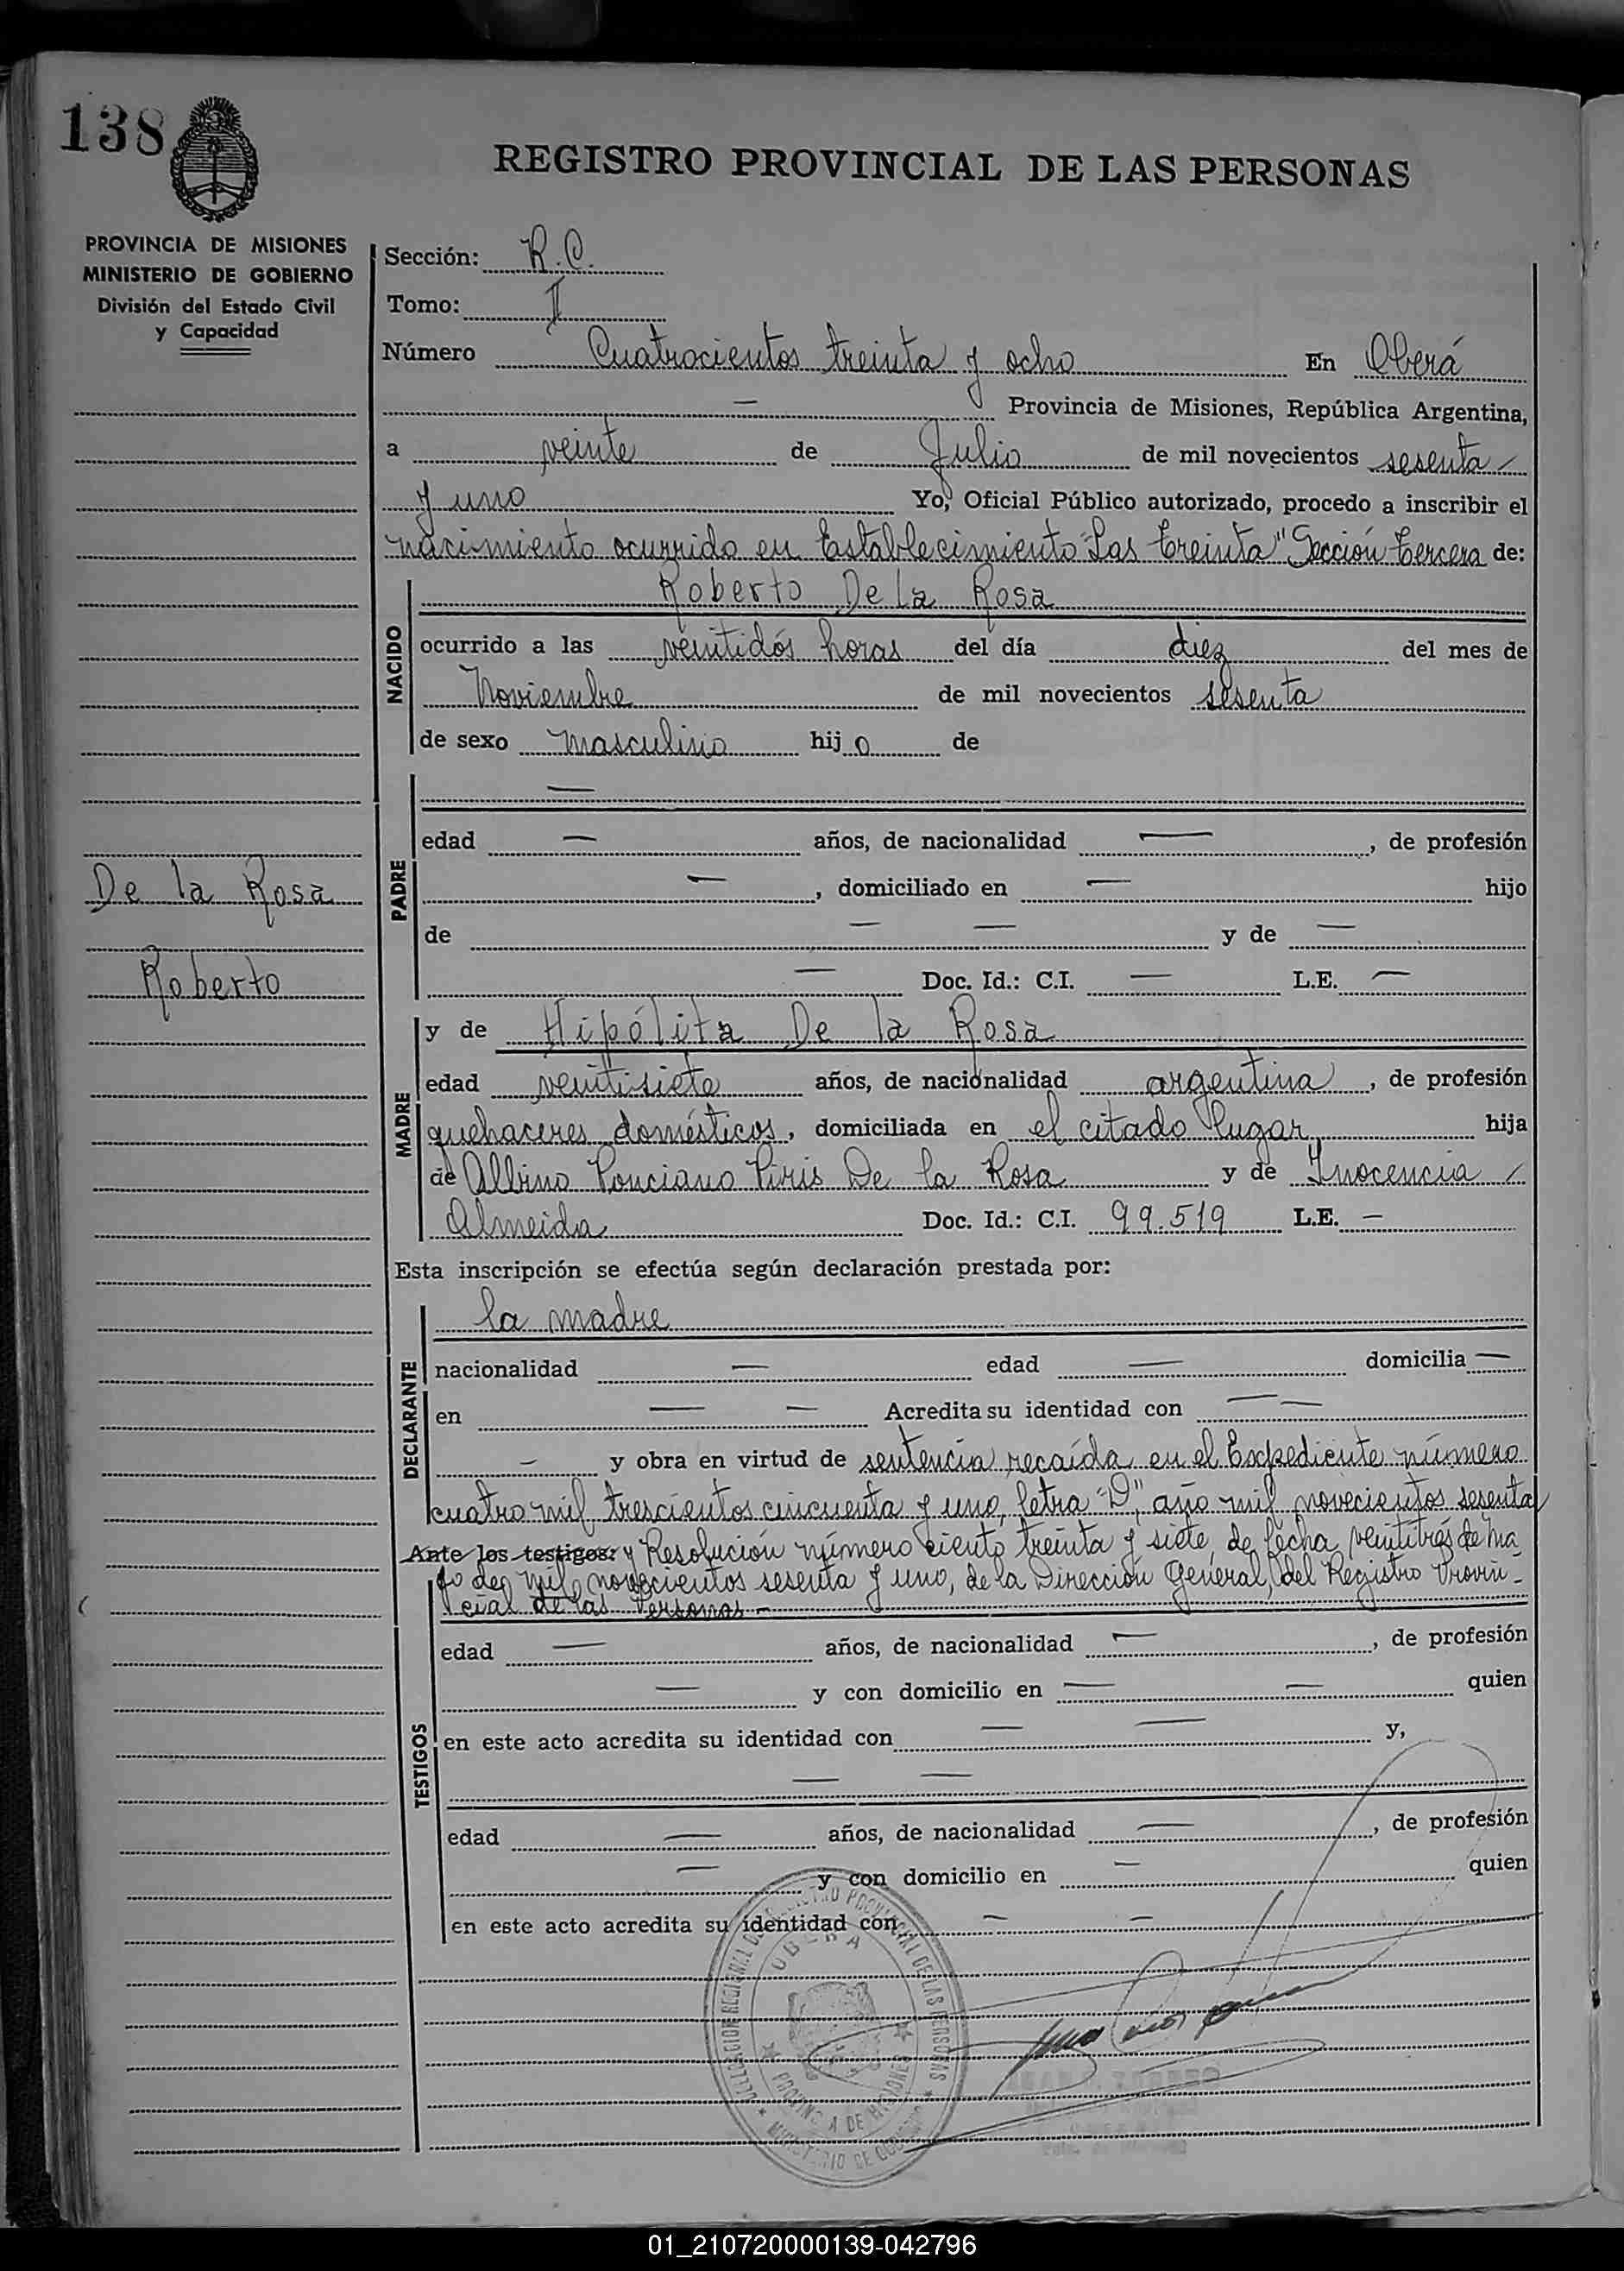 138
REGISTRO PROVINCIAL DE LAS PERSONAS
PROVINCIA DE MISIONES
MINISTERIO DE GOBIERNO
División del Estado Civil
y Capacidad
Sección: R.C.
Tomo: II
Número Cuatrocientos treinta y ocho En Oberá
— Provincia de Misiones, República Argentina,
a veinte de Julio de mil novecientos sesenta
y uno Yo, Oficial Público autorizado, procedo a inscribir el
nacimiento ocurrido en Establecimiento "Las Treinta" Sección Tercera de:
NACIDO
Roberto De la Rosa
ocurrido a las veintidós horas del día diez del mes de
Noviembre de mil novecientos sesenta
de sexo masculino hijo de
PADRE
—
edad — años, de nacionalidad —, de profesión
—, domiciliado en — hijo
de — — y de —
— Doc. Id.: C.I. — L.E. —
De la Rosa
Roberto
MADRE
y de Hipólita De la Rosa
edad veintisiete años, de nacionalidad argentina, de profesión
quehaceres domésticos, domiciliada en el citado lugar, hija
de Albino Ponciano Piris De la Rosa y de Inocencia
Almeida Doc. Id.: C.I. 99.519 L.E. —
Esta inscripción se efectúa según declaración prestada por:
DECLARANTE
la madre
nacionalidad — edad — domicilia —
en — — Acredita su identidad con — —
— y obra en virtud de sentencia recaída en el Expediente número
cuatro mil trescientos cincuenta y uno, letra "D", año mil novecientos sesenta
Ante los testigos: y Resolución número ciento treinta y siete, de fecha veintitrés de Ma-
yo de mil novecientos sesenta y uno, de la Dirección General, del Registro Provin-
cial de las Personas —
TESTIGOS
edad — años, de nacionalidad —, de profesión
— y con domicilio en — — quien
en este acto acredita su identidad con — — y,
— —
edad — años, de nacionalidad —, de profesión
— y con domicilio en — quien
en este acto acredita su identidad con — —
DELEGACION REGIONAL DEL REGISTRO PROVINCIAL DE LAS PERSONAS
OBERA
PROVINCIA DE MISIONES
MINISTERIO DE GOBIERNO
01_210720000139-042796